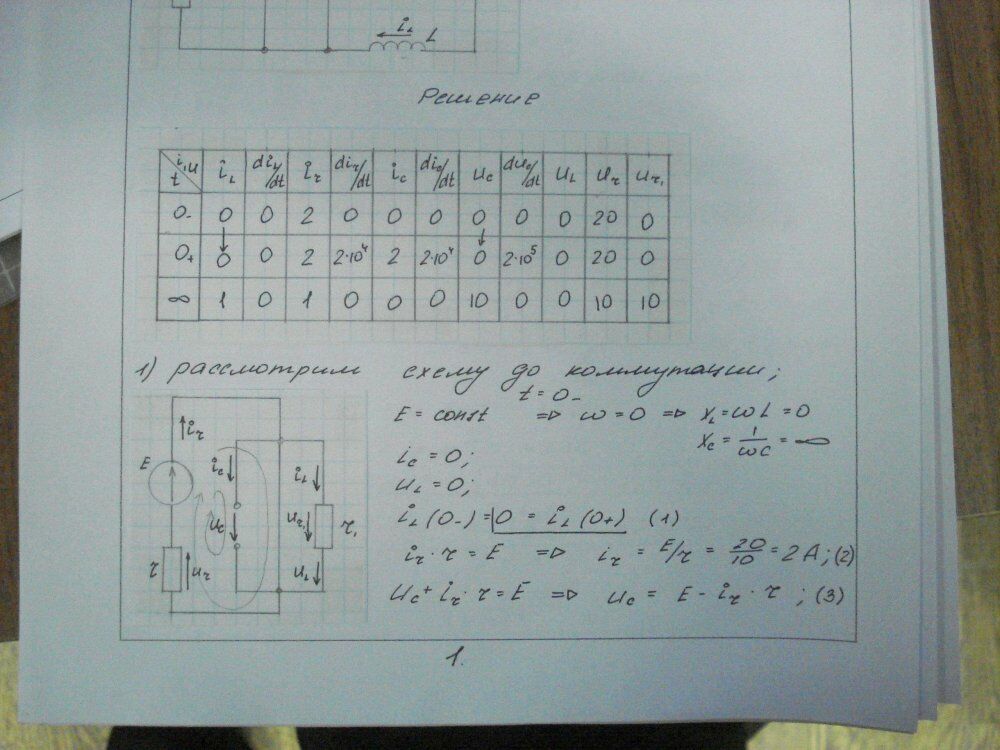 i_L L
Решение
i,u t i_L di_L/dt i_r di_r/dt i_c di_c/dt u_c du_c/dt u_L u_r u_r₁
0- 0 0 2 0 0 0 0 0 0 20 0
0+ 0 0 2 2·10⁴ 2 2·10⁴ 0 2·10⁵ 0 20 0
∞ 1 0 1 0 0 0 10 0 0 10 10
1) рассмотрим схему до коммутации;
t = 0-
E = const => ω = 0 => X_L = ωL = 0
X_C = 1/ωC = ∞
i_c = 0;
u_L = 0;
i_L (0-) = 0 = i_L (0+) (1)
i_r · r = E => i_r = E/r = 20/10 = 2A; (2)
u_c + i_r · r = E => u_c = E - i_r · r ; (3)
i_r
E i_c i_L
u_c u_r₁ r₁
r u_r u_L
1.